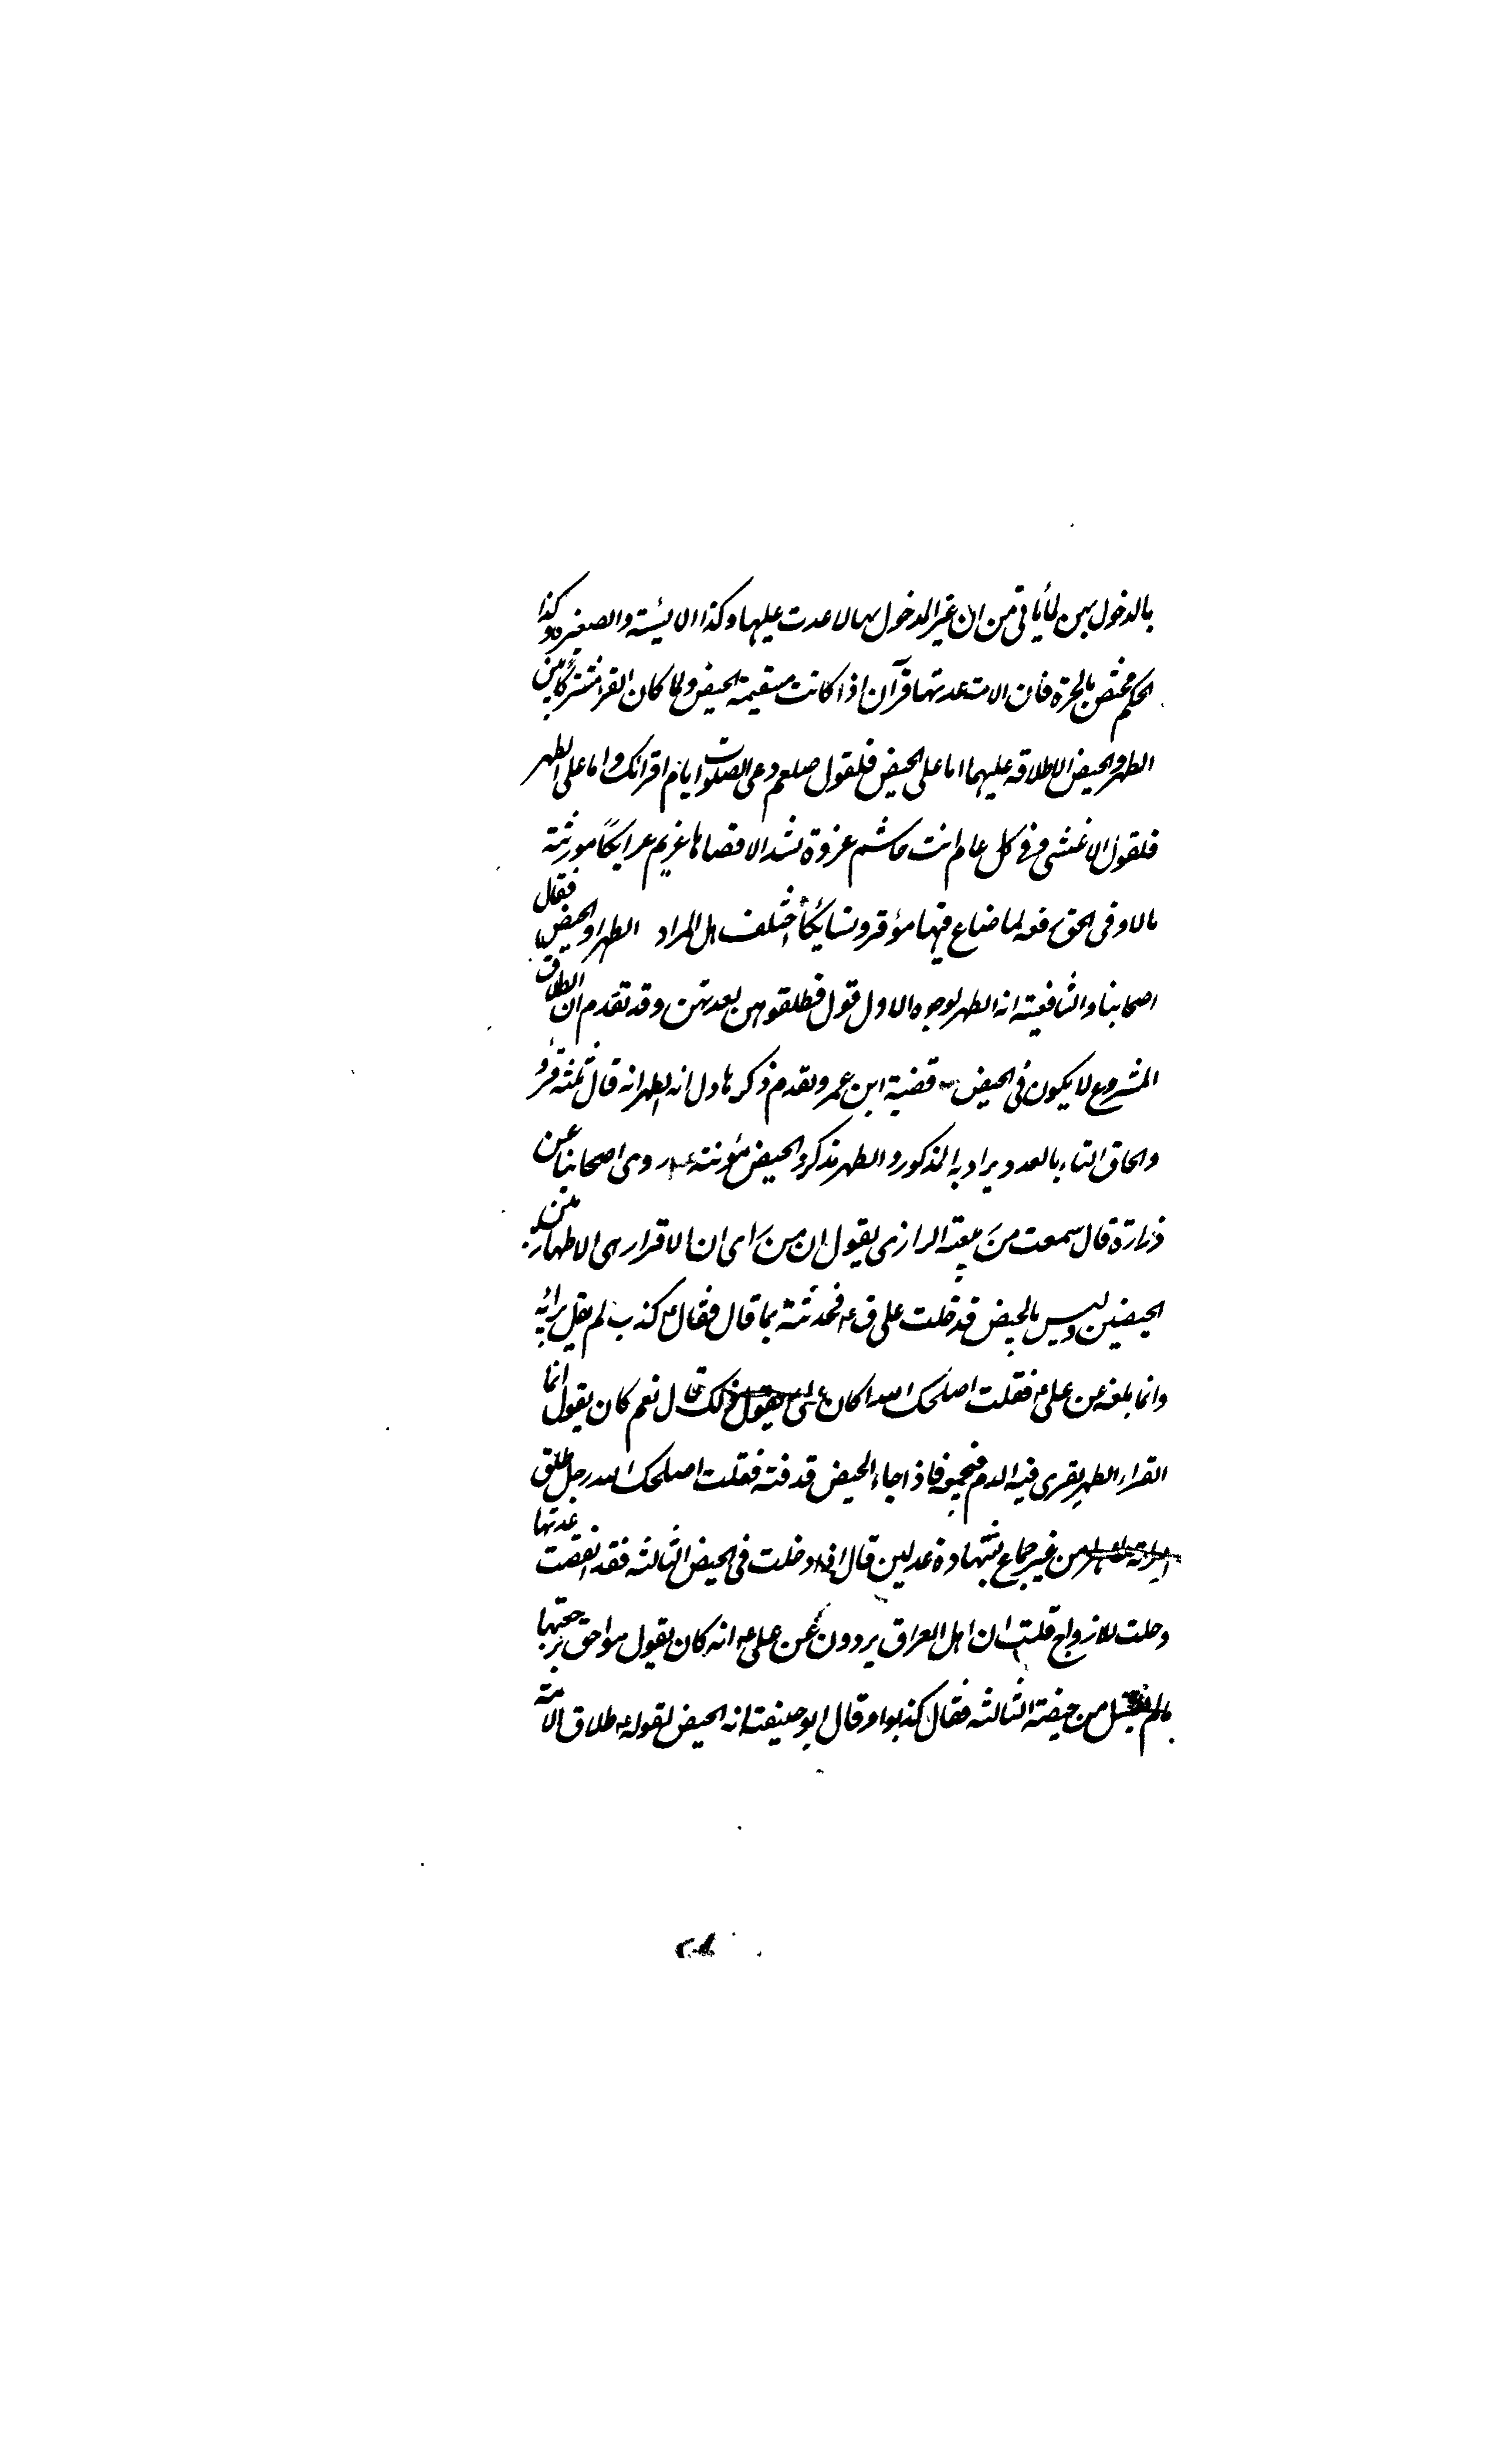 بالدخول بهن لما ياتى من ان غير المدخول بها لا عدت عليها وكذا الايئسة والصغيرة وكذا
الحكم مختص بالحرة فان الامة عدتها قرآن اذا كانت مستقيمة الحيض ولما كان القرأ مشتركاً بين
الطهر والحيض لاطلاقه عليهما اما على الحيض فلقول صلعم دعى الصلوات ايام اقرائك واما على الطهر
فلقول الاعشى وفى كل عام انت جاشم غزوة تشد لاقصاها عزيم عرايكا مورثة
مالا وفى الحق رفعه لما ضاع فيها من قروء نسايكا اختلف هل المراد الطهر او الحيض فقال
اصحابنا والشافعية انه الطهر لوجوه الاول قول فطلقوهن بعدتهن وقد تقدم ان الطلاق
المشروع لا يكون فى الحيض قضية ابن عمر وتقدم ذكرها دل انه الطهر انه قال ثلثة قروء
والحاق التاء بالعدد يراد به المذكور والطهر مذكر والحيض مؤنثة روى اصحابنا عن
زرارة قال سمعت من ربيعة الرازى يقول ان من راى ان الاقراء هى الاطهار بين
الحيضين وليس بالحيض فدخلت على ق ع فحدثته بما قال فقال ع كذب لم يقل برايه
وانما بلغه عن على ع فقلت اصلحك الله اكان على يقول ذلك قال نعم كان يقول انما
القراء الطهر يقرى فيه الدم فتجمعه فاذا جاء الحيض قدفته فقلت اصلحك الله رجل طلق
امراته طاهرا من غير جماع بشهادة عدلين قال اذا دخلت فى الحيض الثالثه فقد انقضت عدتها
وحلت للازواج قلت ان اهل العراق يردون عن على ع انه كان يقول هو احق برجعتها
مالم تغتسل من حيضته الثالثه فقال كذبوا وقال ابو حنيفته انه الحيض لقوله ع طلاق الامة